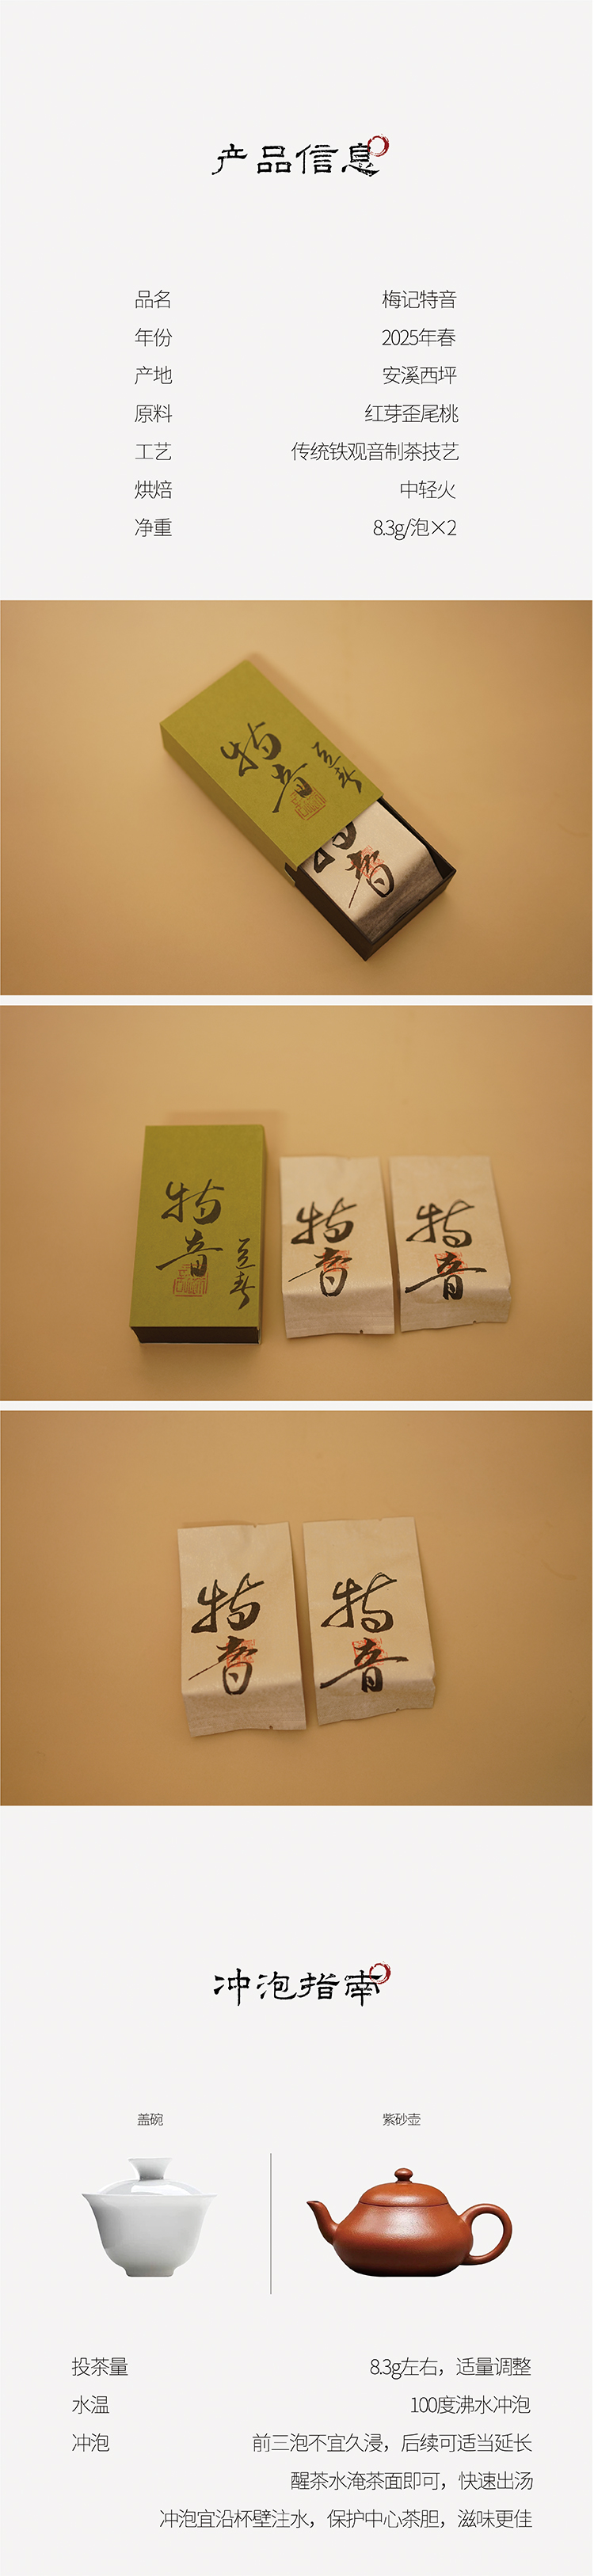 产品信息
品名 梅记特音
年份 2025年春
产地 安溪西坪
原料 红芽歪尾桃
工艺 传统铁观音制茶技艺
烘焙 中轻火
净重 8.3g/泡×2
特音
特音
特音
特音
特音
特音
特音
冲泡指南
盖碗 紫砂壶
投茶量 8.3g左右，适量调整
水温 100度沸水冲泡
冲泡 前三泡不宜久浸，后续可适当延长
醒茶水淹茶面即可，快速出汤
冲泡宜沿杯壁注水，保护中心茶胆，滋味更佳